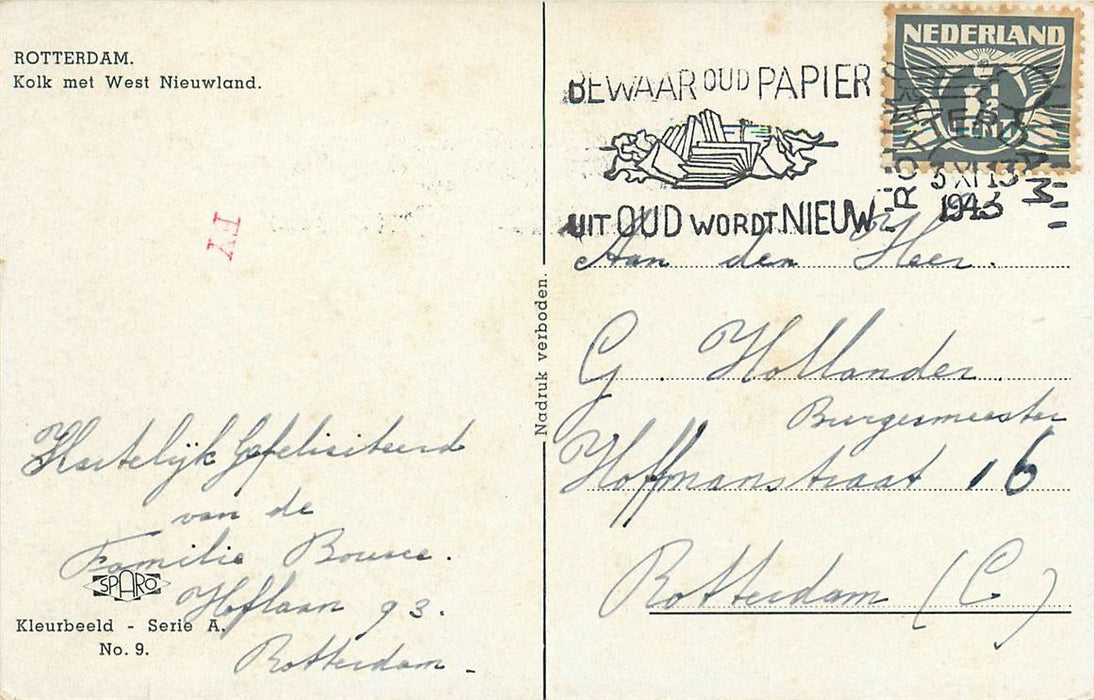 ROTTERDAM.
Kolk met West Nieuwland.
FY
Hartelijk Gefeliciteerd
van de
Familie
Hoflaan 93.
Rotterdam -
SPARO
Kleurbeeld - Serie A.
No. 9.
Nadruk verboden.
BEWAAR OUD PAPIER
UIT OUD WORDT NIEUW
NEDERLAND
1½
CENT
ROTTERDAM
3 XI 13
1943
Aan den Heer.
G. Hollander.
Burgemeester
Hoffmanstraat 16
Rotterdam (C)